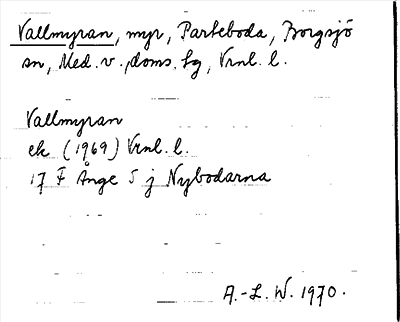 Vallmyran, myr, Parteboda, Borgsjö
sn, Med. v., doms. sg, Vrnl. l.
Vallmyran
ek (1969) Vrnl. l.
17 F Ånge 5 j Nybodarna
A.-L. W. 1970.